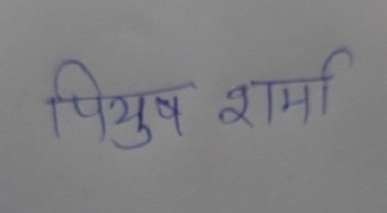 पियुष शर्मा